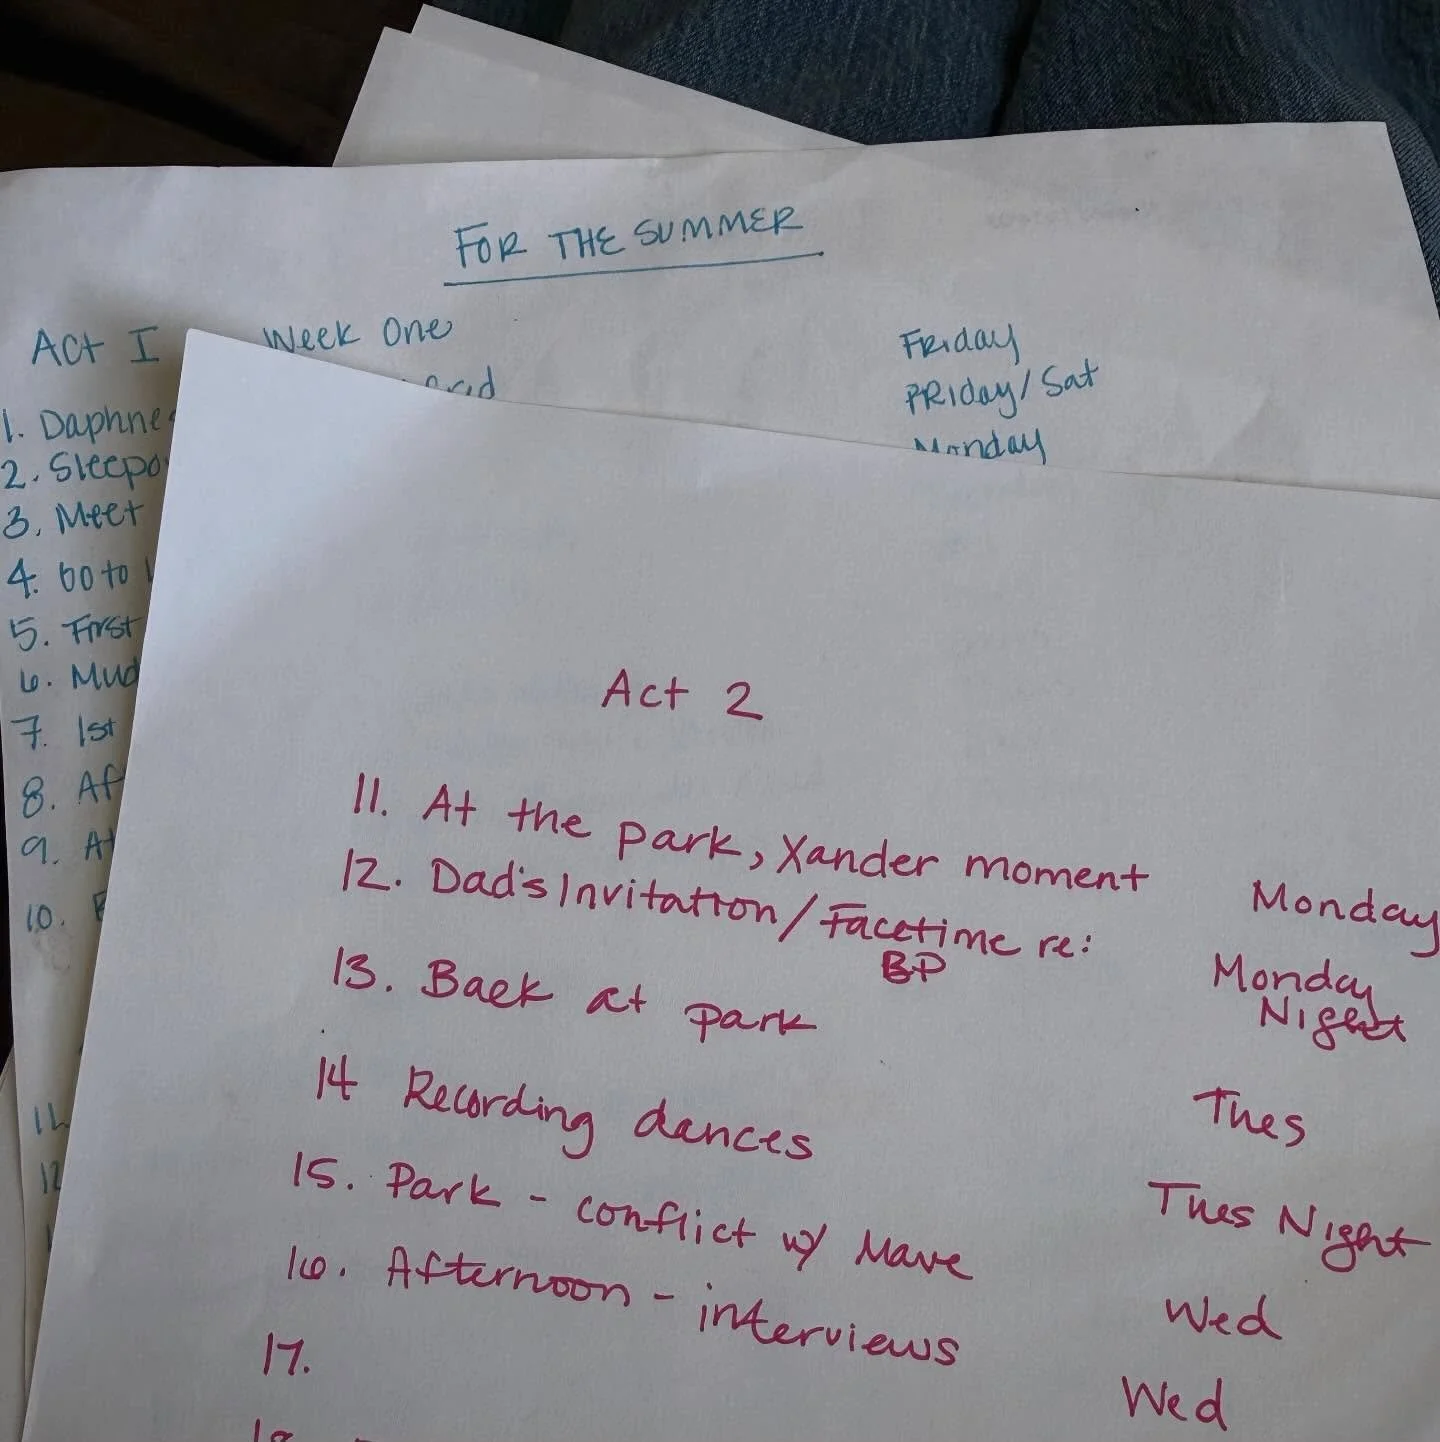 FOR THE SUMMER
Act I Week One Friday
PRIday/Sat
1. Daphne
Monday
2. Sleepo
3. Meet
4. Go to
5. First
6. Mud
7. 1st
8. Af
9. At
10.
11.
12
Act 2
11. At the park, Xander moment Monday
12. Dad's Invitation/Facetime re: BP Monday Night
13. Back at park Tues
14 Recording dances Tues Night
15. Park - conflict w/ Mave Wed
16. Afternoon - interviews Wed
17.
18.